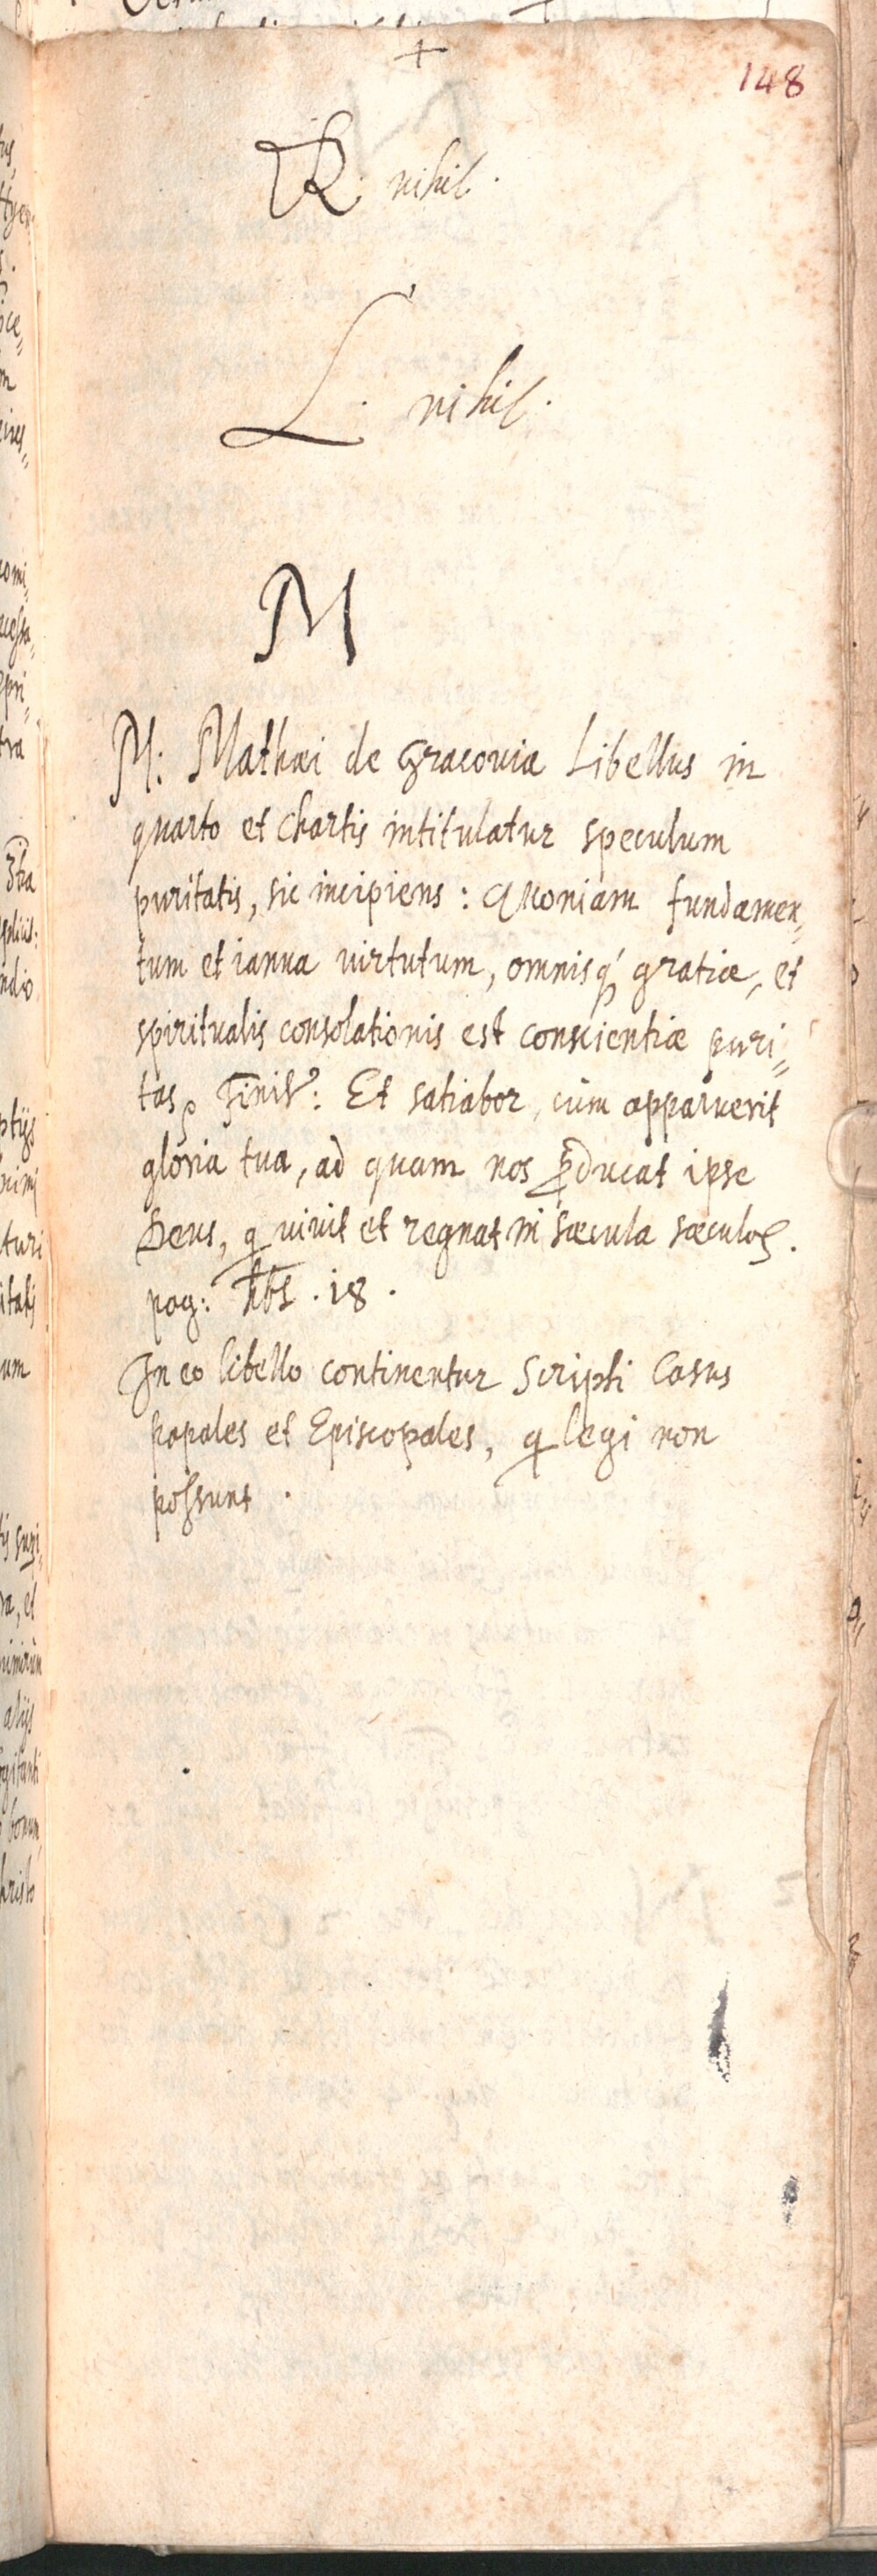 +
148
K. nihil.
L. nihil.
M
M: Mathæi de Gracouia Libellus in
quarto et chartis intitulatur speculum
puritatis, sic incipiens: Quoniam fundamen„
tum et ianua virtutum, omnisq́ gratiæ, et
spiritualis consolationis est conscientiæ puri„
tas, Finit᷒: Et satiabor, cùm apparuerit
gloria tua, ad quam nos ꝓducat ipse
Deus, q̱ viuit et regnat in sæcula sæculoꝝ.
pag: hēt . 18 .
In eo libello continentur Scripti Casus
papales et Episcopales, q̱ legi non
possunt .